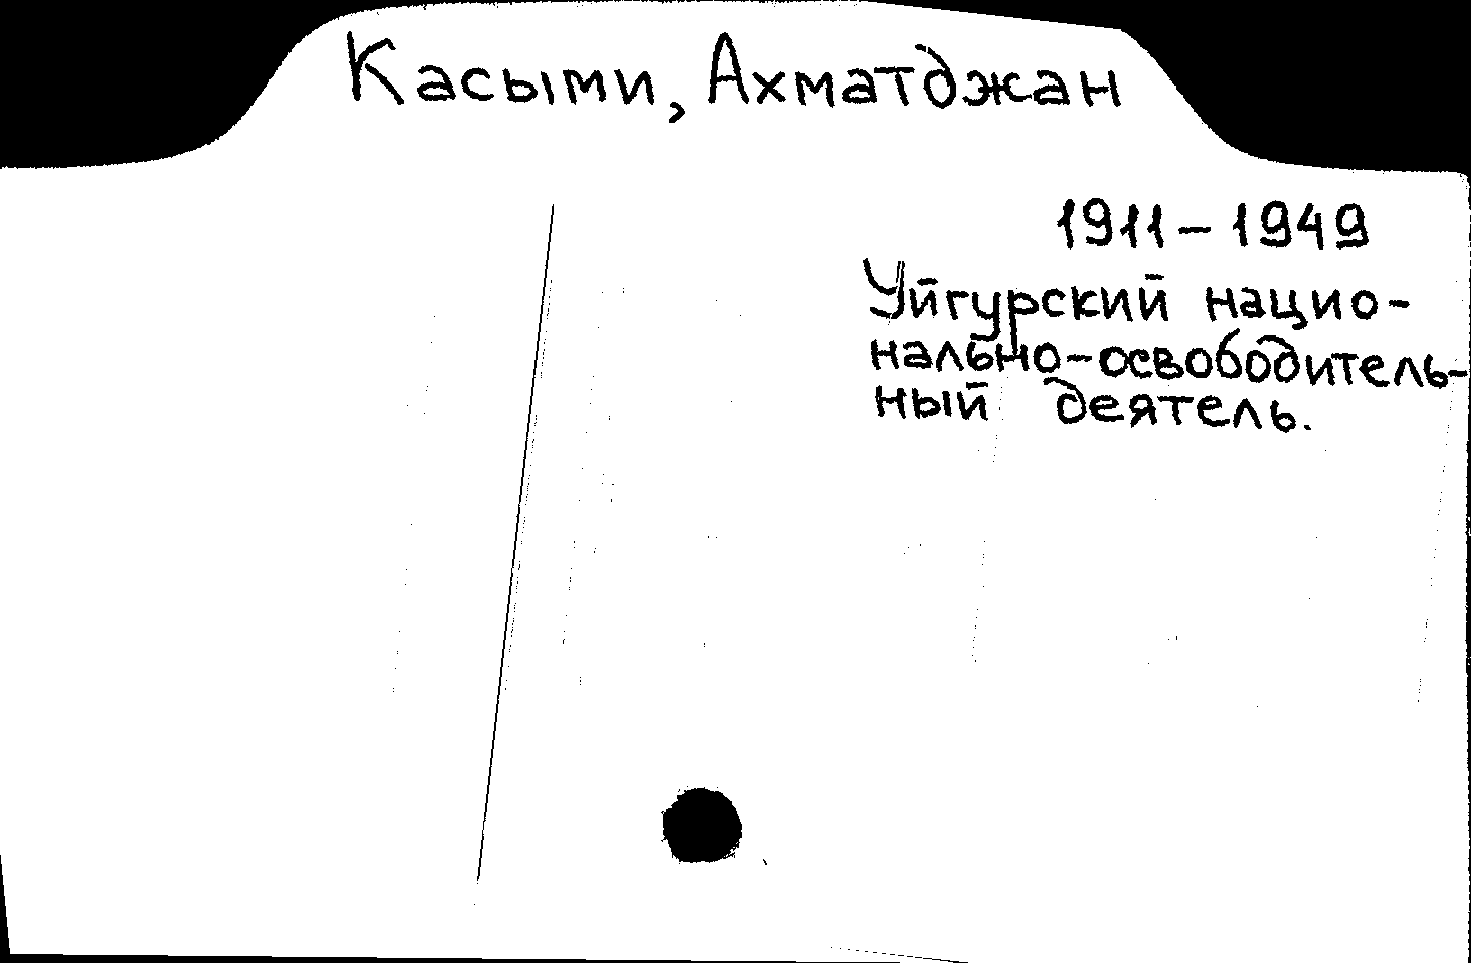 Касыми, Ахматджан
1911-1949
Уйгурский нацио-
нально-освободитель-
ный деятель.